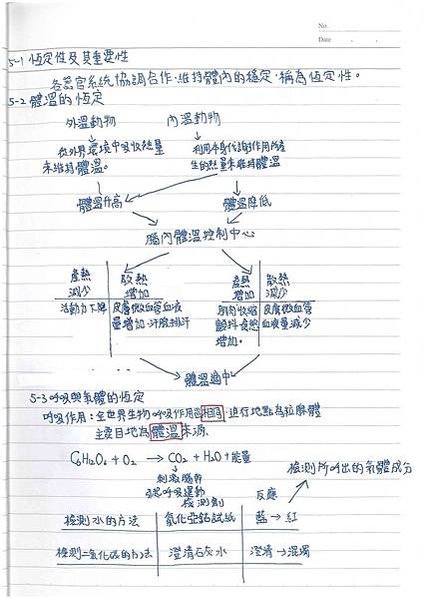 No.
Date
5-1 恆定性及其重要性
各器官系統協調合作，維持體內的穩定，稱為恆定性。
5-2 體溫的恆定
外溫動物 內溫動物
從外界環境中吸收熱量 利用本身代謝作用所產
來維持體溫。 生的熱量來維持體溫
體溫升高 體溫降低
腦內體溫控制中心
產熱 散熱 產熱 散熱
減少 增加 增加 減少
活動力下降 皮膚微血管血液 肌肉收縮 皮膚微血管
量增加，汗腺排汗 顫抖，食慾 血液量減少
增加。
體溫適中
5-3 呼吸與氣體的恆定
呼吸作用：全世界生物呼吸作用皆相同，進行地點為粒線體
主要目地為體溫來源
C6H12O6 + O2 → CO2 + H2O + 能量
刺激腦幹
呼吸運動
檢測所呼出的氣體成分
檢測劑 反應
檢測水的方法 氯化亞鈷試紙 藍→紅
檢測二氧化碳的方法 澄清石灰水 澄清→混濁